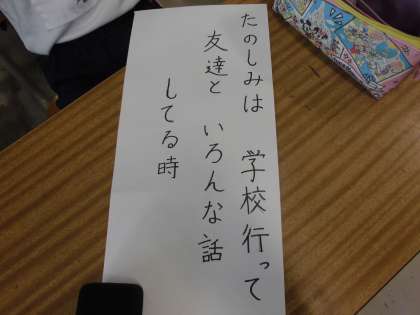 たのしみは 学校行って
友達と いろんな話
してる時